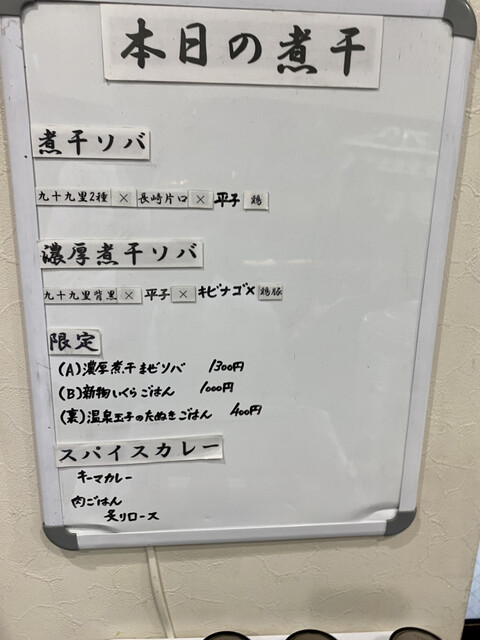 本日の煮干
煮干ソバ
九十九里2種 × 長崎片口 × 平子 鶏
濃厚煮干ソバ
九十九里背黒 × 平子 × キビナゴ× 鶏豚
限定
(A)濃厚煮干まぜソバ 1300円
(B)新物いくらごはん 1000円
(裏)温泉玉子のたぬきごはん 400円
スパイスカレー
キーマカレー
肉ごはん
炙りロース